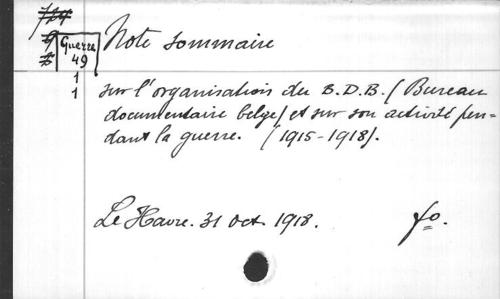 Guerre
49
1
1
Note sommaire
sur l'organisation du B.D.B. (Bureau
documentaire belge) et sur son activité pen-
dant la guerre. (1915-1918).
Le Havre. 31 Oct. 1918. fo.